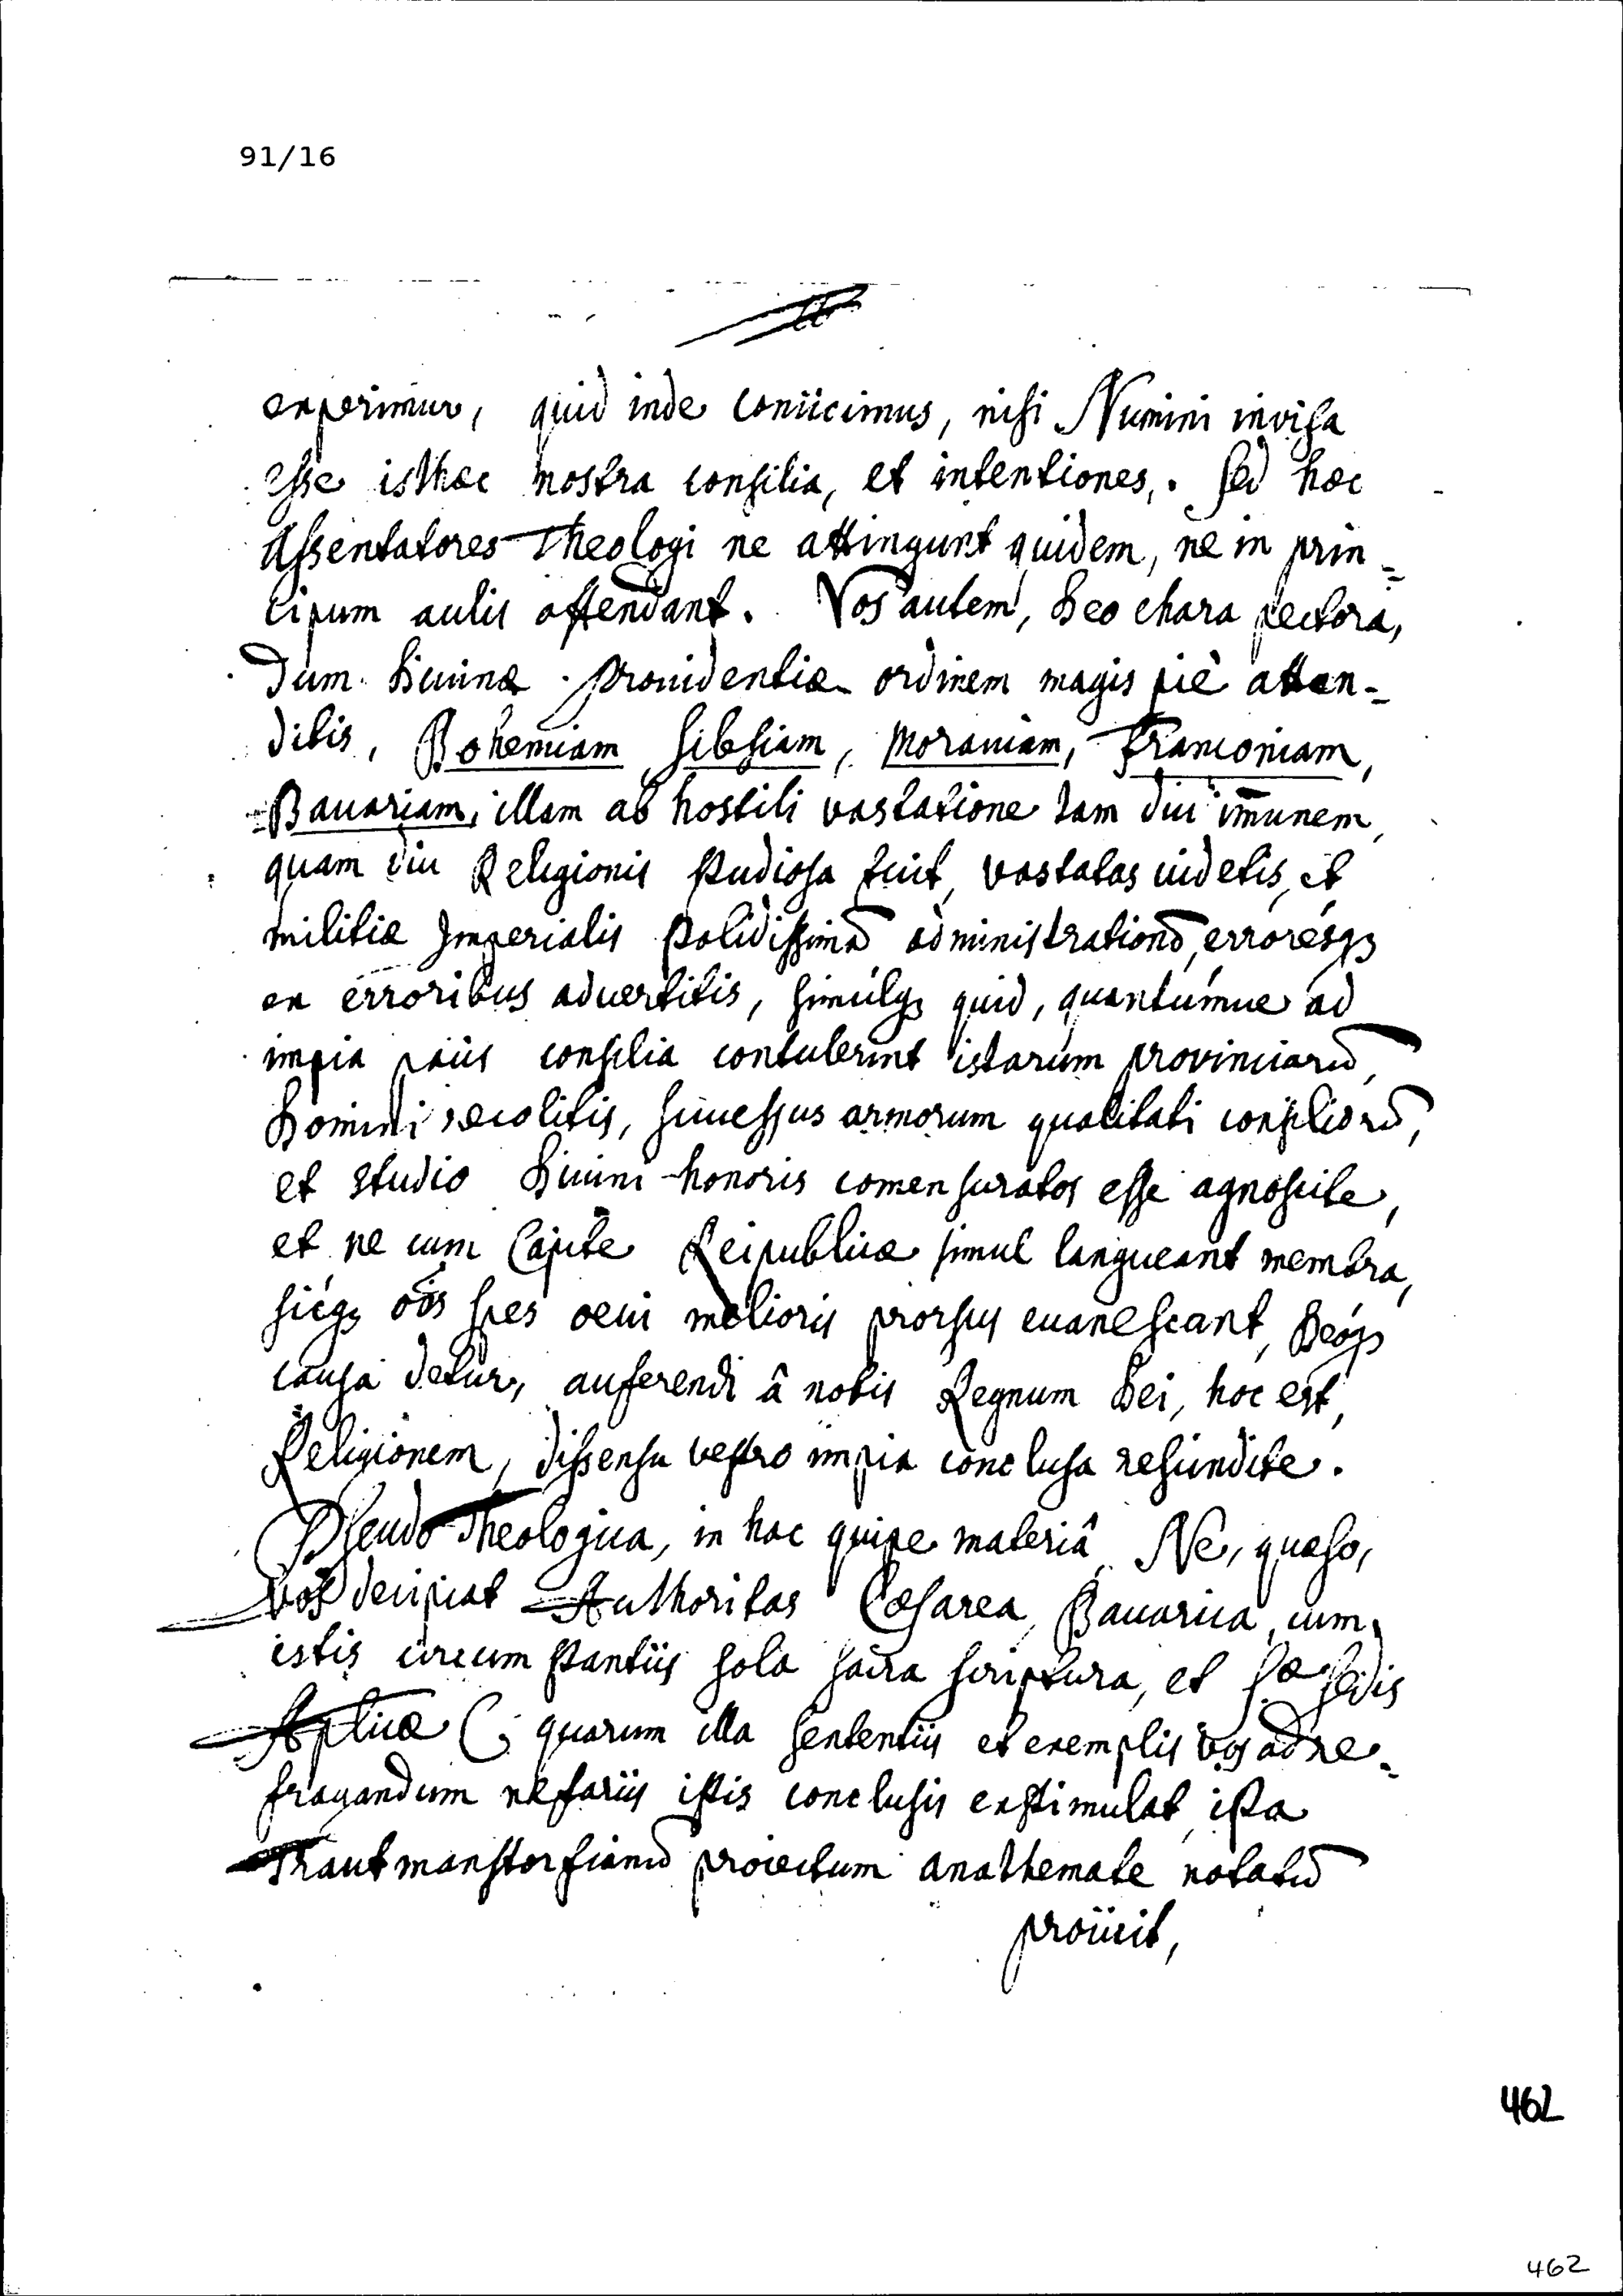 91/16
experimur, quid inde coniicimus, nisi Numini invisa
esse isthæc nostra consilia, et intentiones. Sed hæc
Assentatores Theologi ne attingunt quidem, ne in prin=
cipum aulis offendant. Vos autem, Deo chara pectora,
dum Diuinæ prouidentiæ ordinem magis piè atten=
ditis, Bohemiam, Silesiam, Morauiam, Franconiam,
Bauariam, illam ab hostili vastatione tam diu im̄unem,
quam diu Religionis studiosa fuit, vastatas uidetis, et
militiæ Imperialis stolidissimā administrationē, erroresq3
ex erroribus aduertitis, simulq3 quid, quantúmue ad
impia pacis consilia contulerint istarum provinciarū,
Domini recolitis, successus armorum qualitati consiliorū,
et studio Diuini honoris comensuratos esse agnoscite,
et ne cum Capite Reipublicæ simul langueant membra,
sicq3 oēs spes æui melioris prorsus euanescant, Deóq3
causa detur, auferendi â nobis Regnum Dei, hoc est,
Religionem, dissensu vestro impia conclusa rescindite.
Pseudo-Theologica, in hac quipe materiâ, Ne, quæso,
vos decipiat Authoritas Cæsarea, Bauarica, cum
istis circumstantiis sola sacra scriptura, et Sæ Sedis
Aplicæ (; quarum illa sententiis et exemplis vos ad re=
fragandum nefariis istis conclusis exstimulat, ista
Trautmanstorfianū proiectum anathemate notatū
proiicit,
462
462